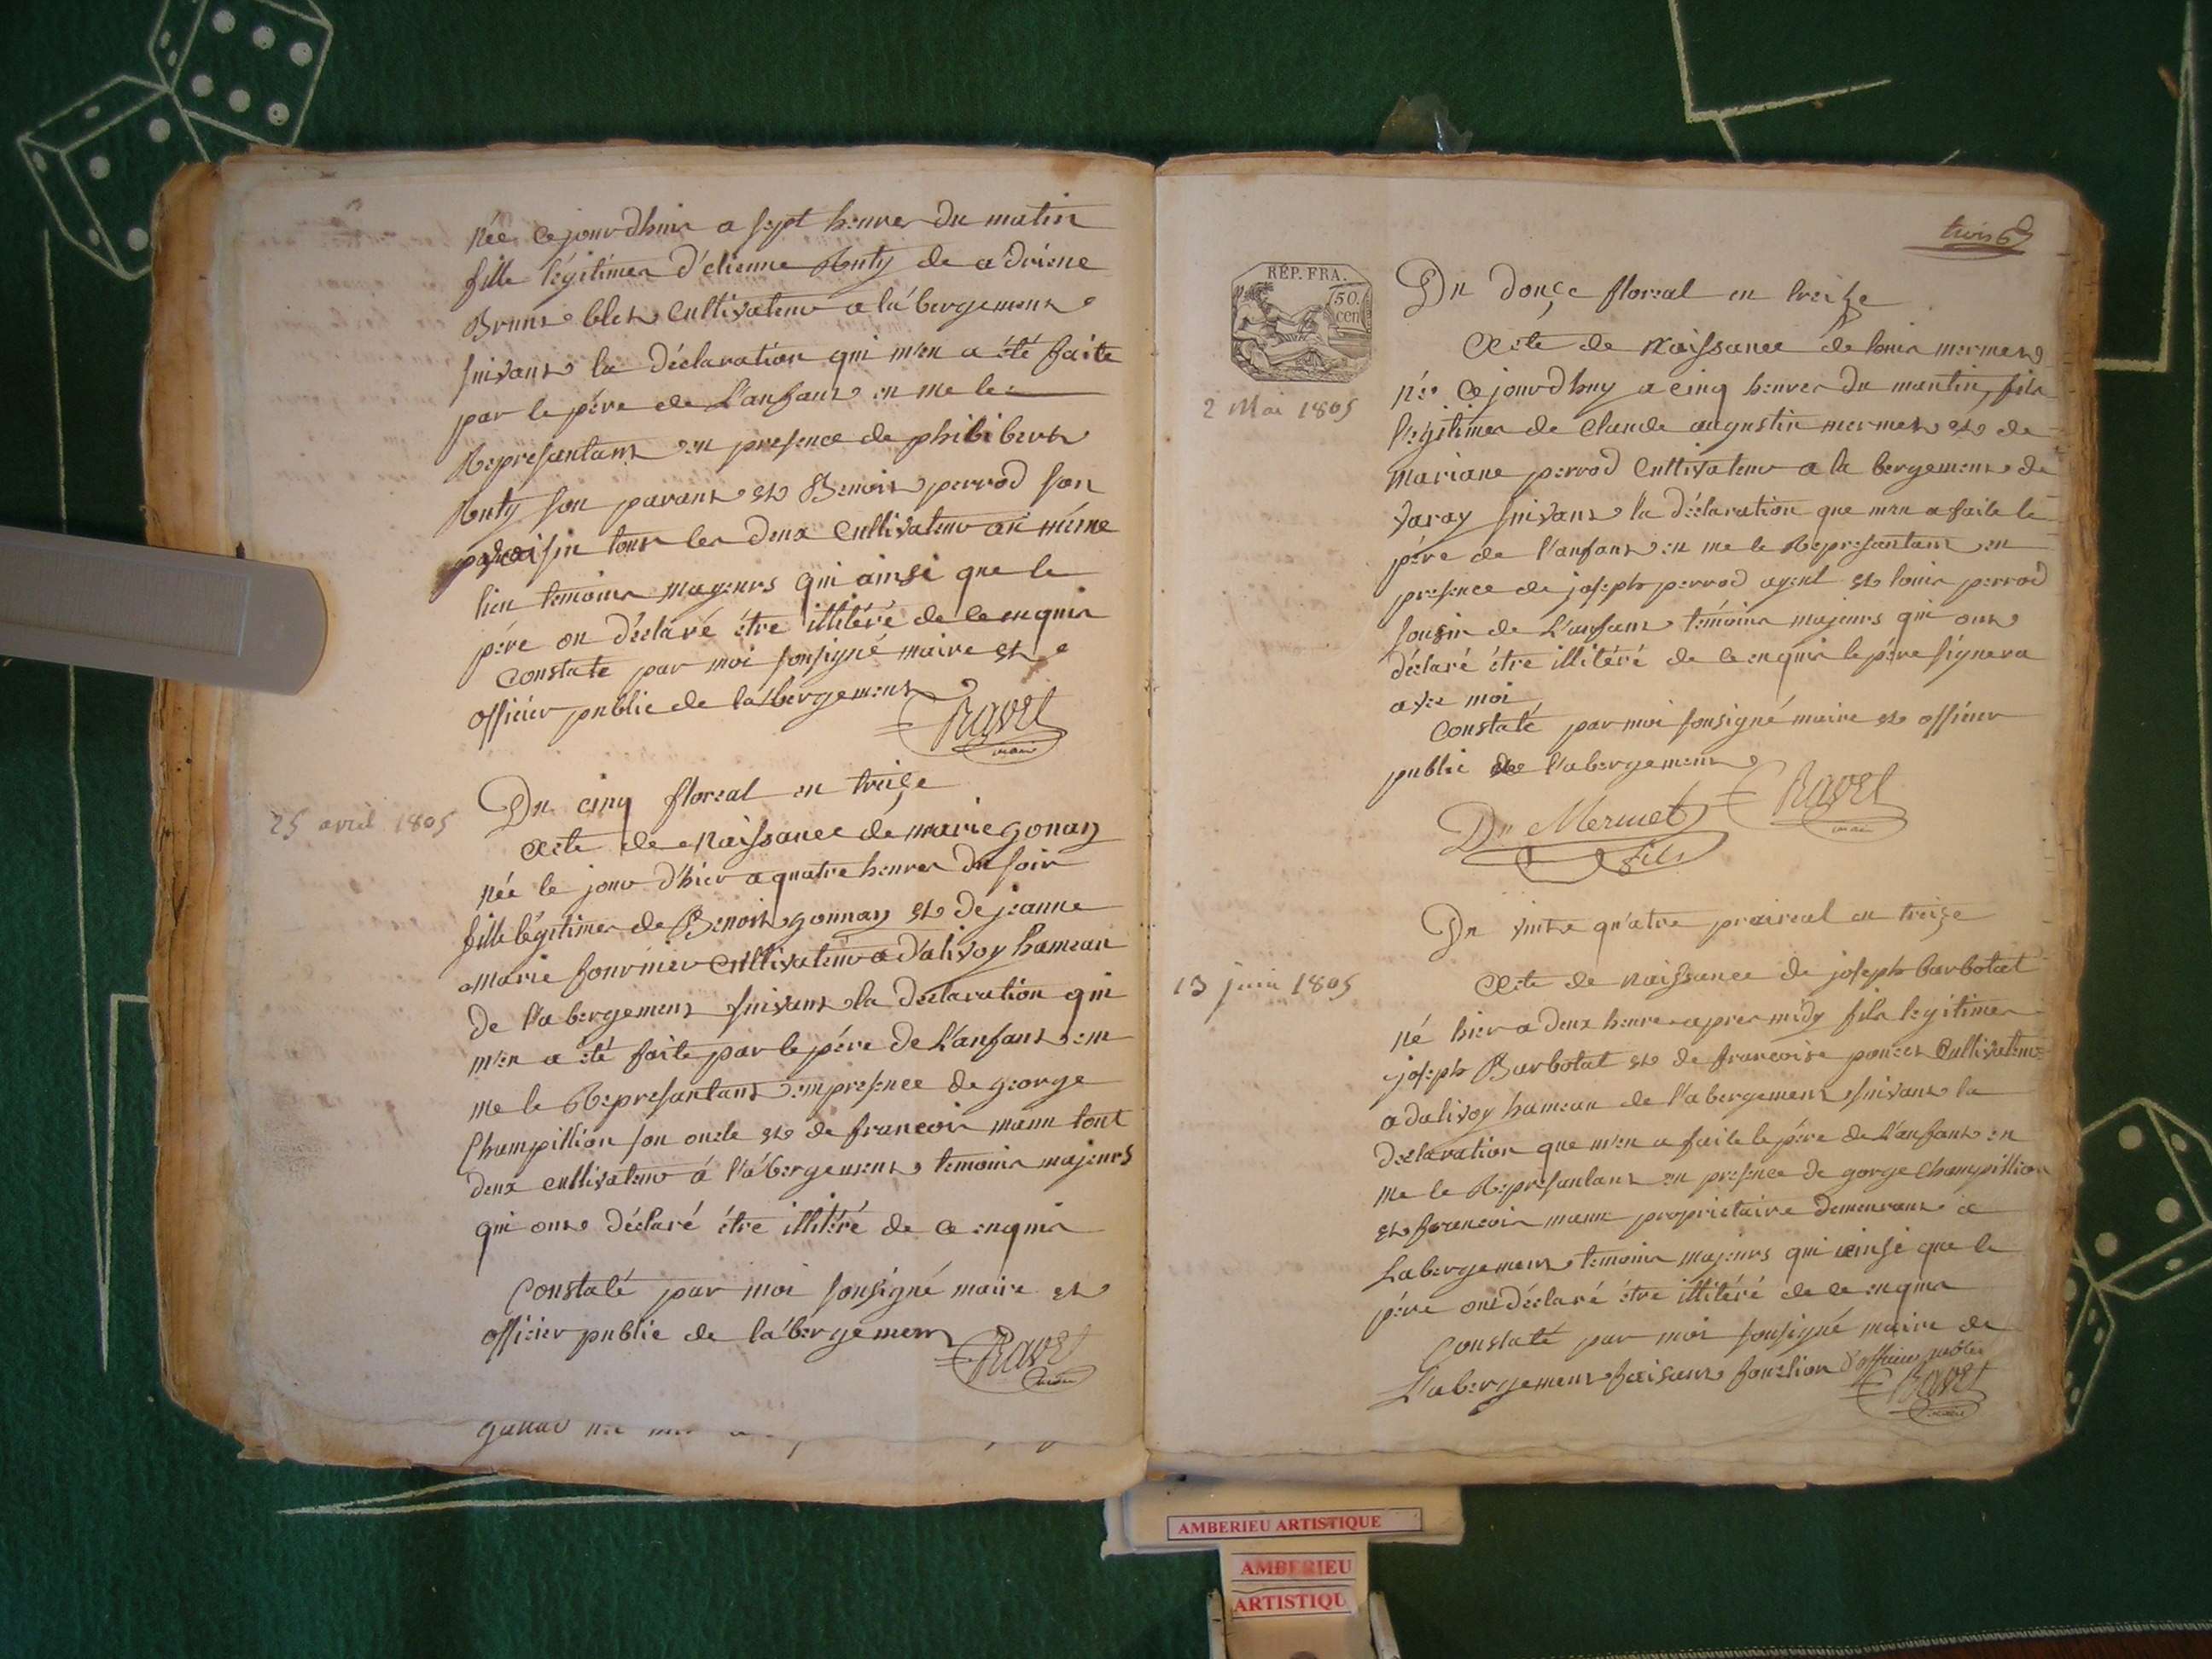 née ce jourdhuir a sept heures du matin
fille légitimer d'etienne Ruty de adriene
Brunet blet cultivateur a l'abergement
suivant la déclaration qui m'en a été faite
par le père de L'anfant en me le
Représantant en presence de philibert
Ruty son parant et Benoit perrod son
voisin tous les deux cultivateur au même
lieu temoins mageurs qui ainsi que le
père on déclaré étre illitéré de ce enquis
Constate par moi sousigné maire et
officier public de l'abergement
Ravet
maire
25 avril 1805
Du cinq floreal en treize
Acte de Naissance de marie gonay
née le jour d'hier a quatre heures du soir
fille légitimer de Benoit gonnay et de jeanne
Marie fournier cultivateur a dalivoy hameau
de l'abergement suivant la déclaration qui
m'en a été faite par le père de L'anfant em
me le Représantant empresence de george
Champillion son oncle et de francois mann tout
deux cultivateur á l'ábergement temoins majeurs
qui ont déclaré étre illitéré de ce enquis
Constaté par moi sousigné maire et
officier public de l'ábergement
Ravet
maire
gallad née
trois
RÉP. FRA.
50.
cen
Du douze floreal en treize
2 Mai 1805
Acte de Naissance de louis mermet
né ce jourdhuy a cinq heures du mantin, fils
légitimer de Claude augustin mermet et de
Mariane perrod Cultivateur a la bergement de
Varay suivant la déclaration que men a faite le
père de l'anfant en me le Représantant en
presence de joseph perrod ayent et louis perrod
sousin de L'anfant témoins majeurs qui ont
déclaré étre illitéré de ce enquis le père signera
avec moi
Constaté par moi sousigné maire et officier
public de l'abergement
Ravet
maire
Dn Mermet
fils
Du vint et quatre praireal en treize
13 juin 1805
Acte de naissance de joseph barbotat
Né hier a deux heure apres midy fils legitimer
joseph Barbotat et de francoise poncet Cultivateur
a dalivoy hameau de l'abergement suivant la
declaration que m'en a faite le père de L'anfant en
me le Représantant en presence de gorge Champillion
et francois mann proprietaire demeurant a
Labergement temoins majeurs qui ainsi que le
père ont déclaré étre illitéré de ce enquis
Constaté par moi sousigné maire de
L'abergement faisant fonction d'officier public
Ravet
maire
AMBERIEU ARTISTIQUE
AMBERIEU
ARTISTIQU